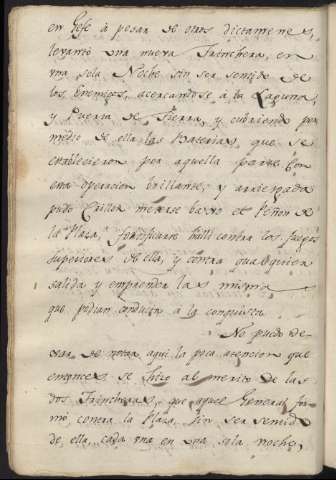 en Gefe à pesar de otros dictamenes,
levantó una nueva Trinchera, en
una sola Noche sin ser sentido de
los Enemigos, acercandose à la Laguna,
y Puerta de Tierra, y cubriendo por
medio de ella las Baterias, que se
establecieron por aquella parte. Con
esta operacion brillante, y arriesgada
pudo Crillon meterse baxo el Peñon de
la Plaza, fortificarse halli contra los fuegos
superiores de ella, y contra qualquiera
salida y emprender las mismas
que podian conducir à la conquista.
No puedo de-
xar de notar aqui la poca atencion que
entonces se hizo al merito de las
dos Trincheras, que aquel General for-
mó contra la Plaza, sin ser sentido
de ella, cada una en una sola noche,